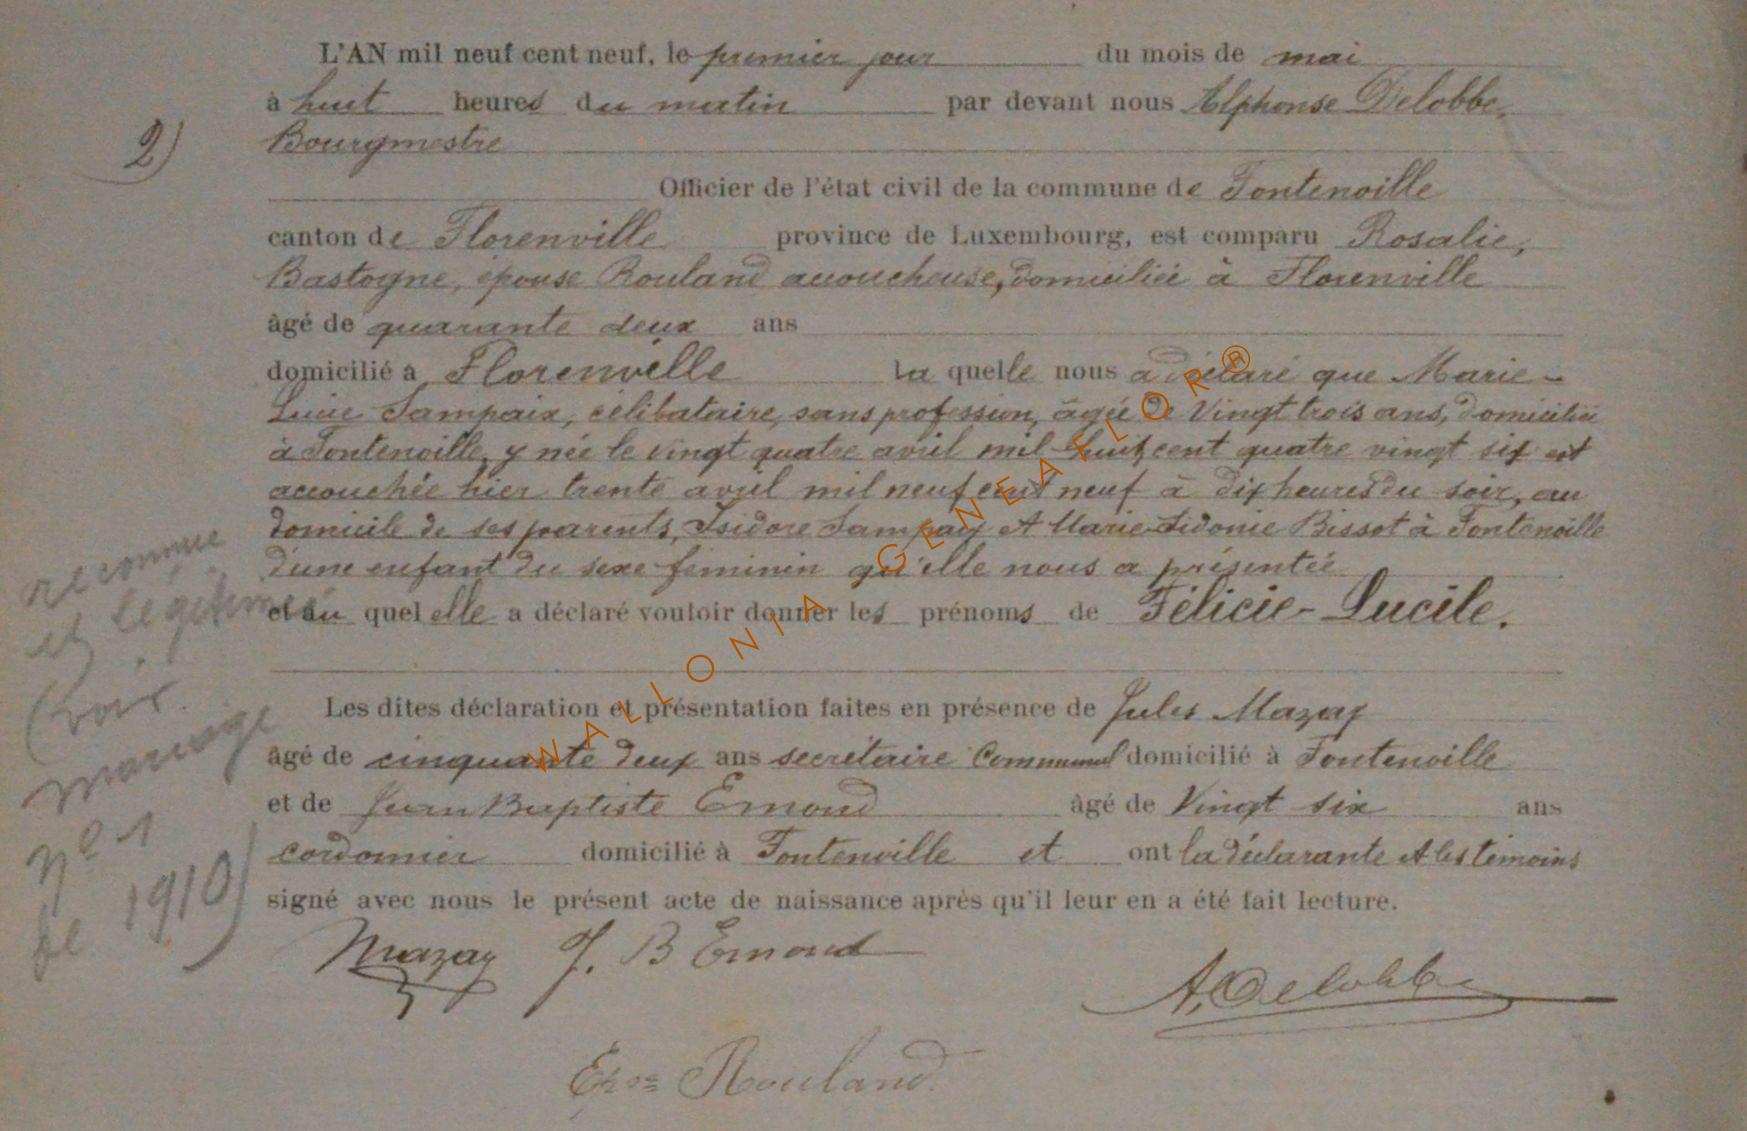 L'AN mil neuf cent neuf, le premier jour du mois de mai
à huit heures du matin par devant nous Alphonse Delobbe,
2)
Bourgmestre
Officier de l'état civil de la commune de Fontenoille
canton de Florenville province de Luxembourg, est comparu Rosalie,
Bastogne, épouse Rouland accoucheuse, domiciliée à Florenville
âgé de quarante deux ans
domicilié à Florenville la quelle nous a déclaré que Marie-
Lucie Sampaix, célibataire, sans profession, âgée de Vingt trois ans, domiciliée
à Fontenoille, y née le vingt quatre avril mil huit cent quatre vingt six est
accouchée hier trente avril mil neuf cent neuf à dix heures du soir, au
domicile de ses parents, Isidore Sampaix et Marie-Sidonie Bissot à Fontenoille
d'une enfant du sexe féminin qu'elle nous a présentée
et au quel elle a déclaré vouloir donner les prénoms de Félicie-Lucile.
reconnue
et légitimée
(voir
mariage
n° 1
de 1910)
Les dites déclaration et présentation faites en présence de Jules Mazay
âgé de cinquante deux ans secrétaire Communal domicilié à Fontenoille
et de Jean Baptiste Emond âgé de Vingt six ans
cordonnier domicilié à Fontenoille et ont la déclarante et les témoins
signé avec nous le présent acte de naissance après qu'il leur en a été fait lecture.
Mazay J. B Emond
A. Delobbe
Epse Rouland.
WALLONIA GENEAFLOR®